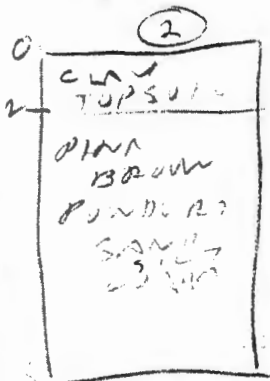 2
0
CLAY
TOPSOIL
2
PINK
BROWN
POWDERY
SANDY
SILT